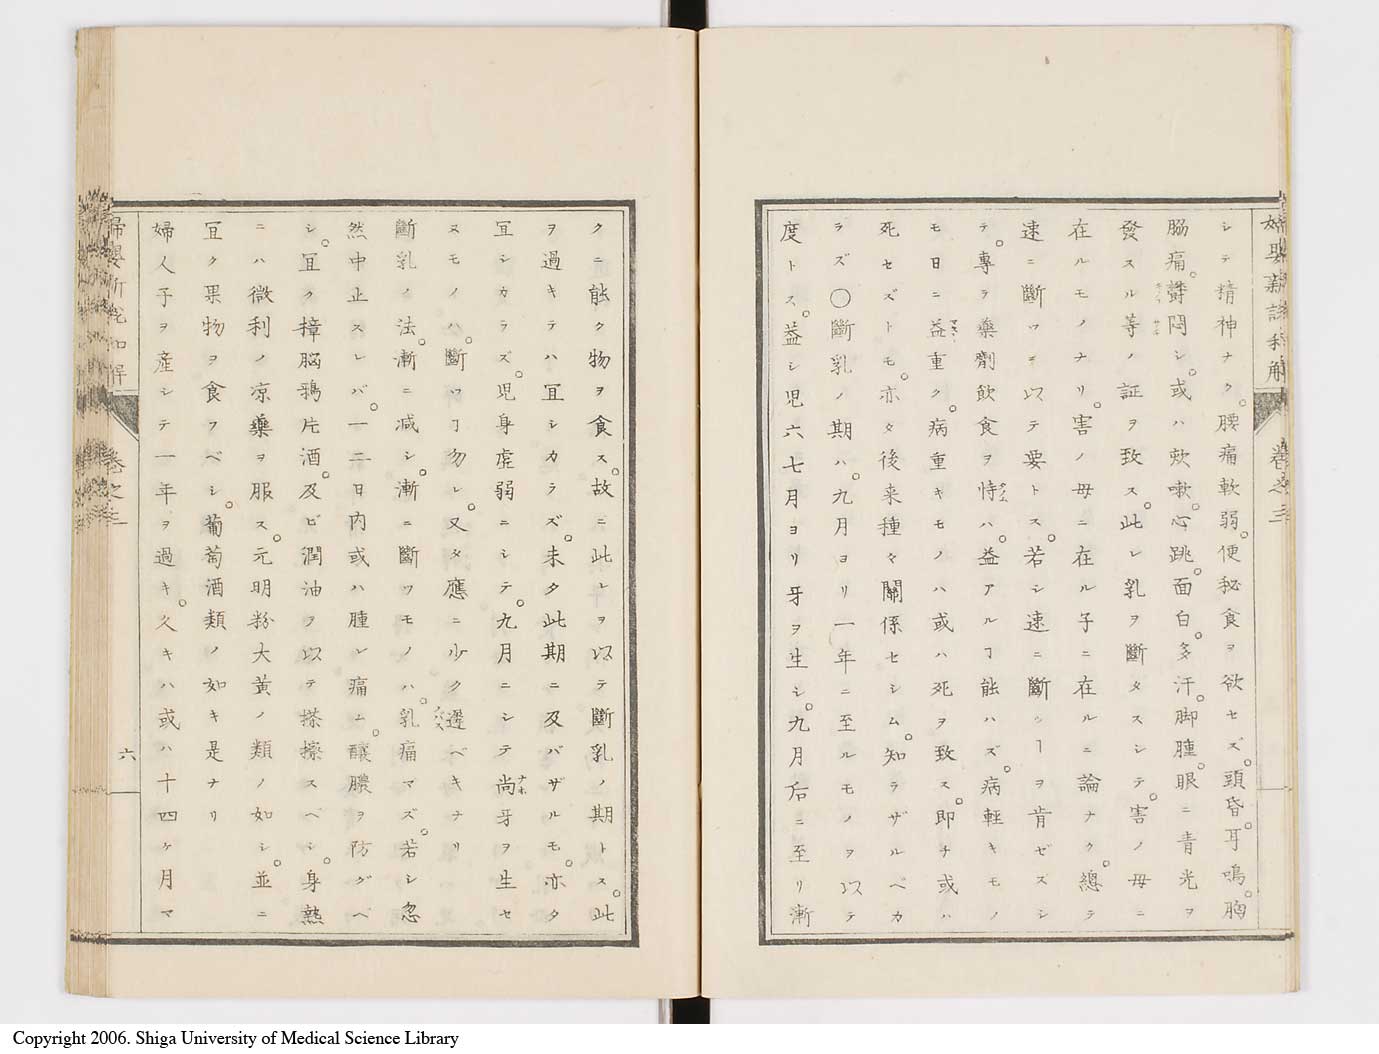 シテ精神ナク。腰痛軟弱。便秘食ヲ欲セズ。頭昏耳鳴。胸
脇痛。欝悶シ。或ハ欬嗽。心跳。面白。多汗。脚腫。眼ニ青光ヲ
發スル等ノ証ヲ致ス。此レ乳ヲ斷タスシテ。害ノ母ニ
在ルモノナリ。害ノ母ニ在ル子ニ在ルニ論ナク。總テ
速ニ斷ツヿヲ以テ要トス。若シ速ニ斷ツヿヲ肯ゼズシ
テ。專ラ藥劑飲食ヲ恃ハ。益アルヿ能ハズ。病軽キモノ
モ日ニ益重ク。病重キモノハ或ハ死ヲ致ス。即チ或ハ
死セズトモ。亦タ後来種々關係セシム。知ラザルベカ
ラズ〇斷乳ノ期ハ。九月ヨリ一年ニ至ルモノヲ以テ
度トス。葢シ児六七月ヨリ牙ヲ生シ。九月后ニ至リ漸
婦嬰新説和解
卷之三
クニ能ク物ヲ食ス。故ニ此レヲ以テ斷乳ノ期トス。此
ヲ過キテハ冝シカラズ。未タ此期ニ及バザルモ。亦タ
冝シカラズ。児身虚弱ニシテ。九月ニシテ尚牙ヲ生セ
ヌモノハ。斷ツヿ勿レ。又タ應ニ少ク遅ベキナリ
斷乳ノ法。漸ニ减シ。漸ニ斷ツモノハ。乳痛マズ。若シ忽
然中止スレバ。一二日内或ハ腫レ痛ム。釀膿ヲ防グベ
シ。冝ク樟脳鴉片酒。及ビ潤油ヲ以テ搽擦スベシ。身熱
ニハ微利ノ凉藥ヲ服ス。元明粉大黄ノ類ノ如シ。並ニ
冝ク果物ヲ食フベシ。葡萄酒類ノ如キ是ナリ
婦人子ヲ産シテ一年ヲ過キ。久キハ或ハ十四ヶ月マ
婦嬰新説和解
卷之三
六
Copyright 2006. Shiga University of Medical Science Library